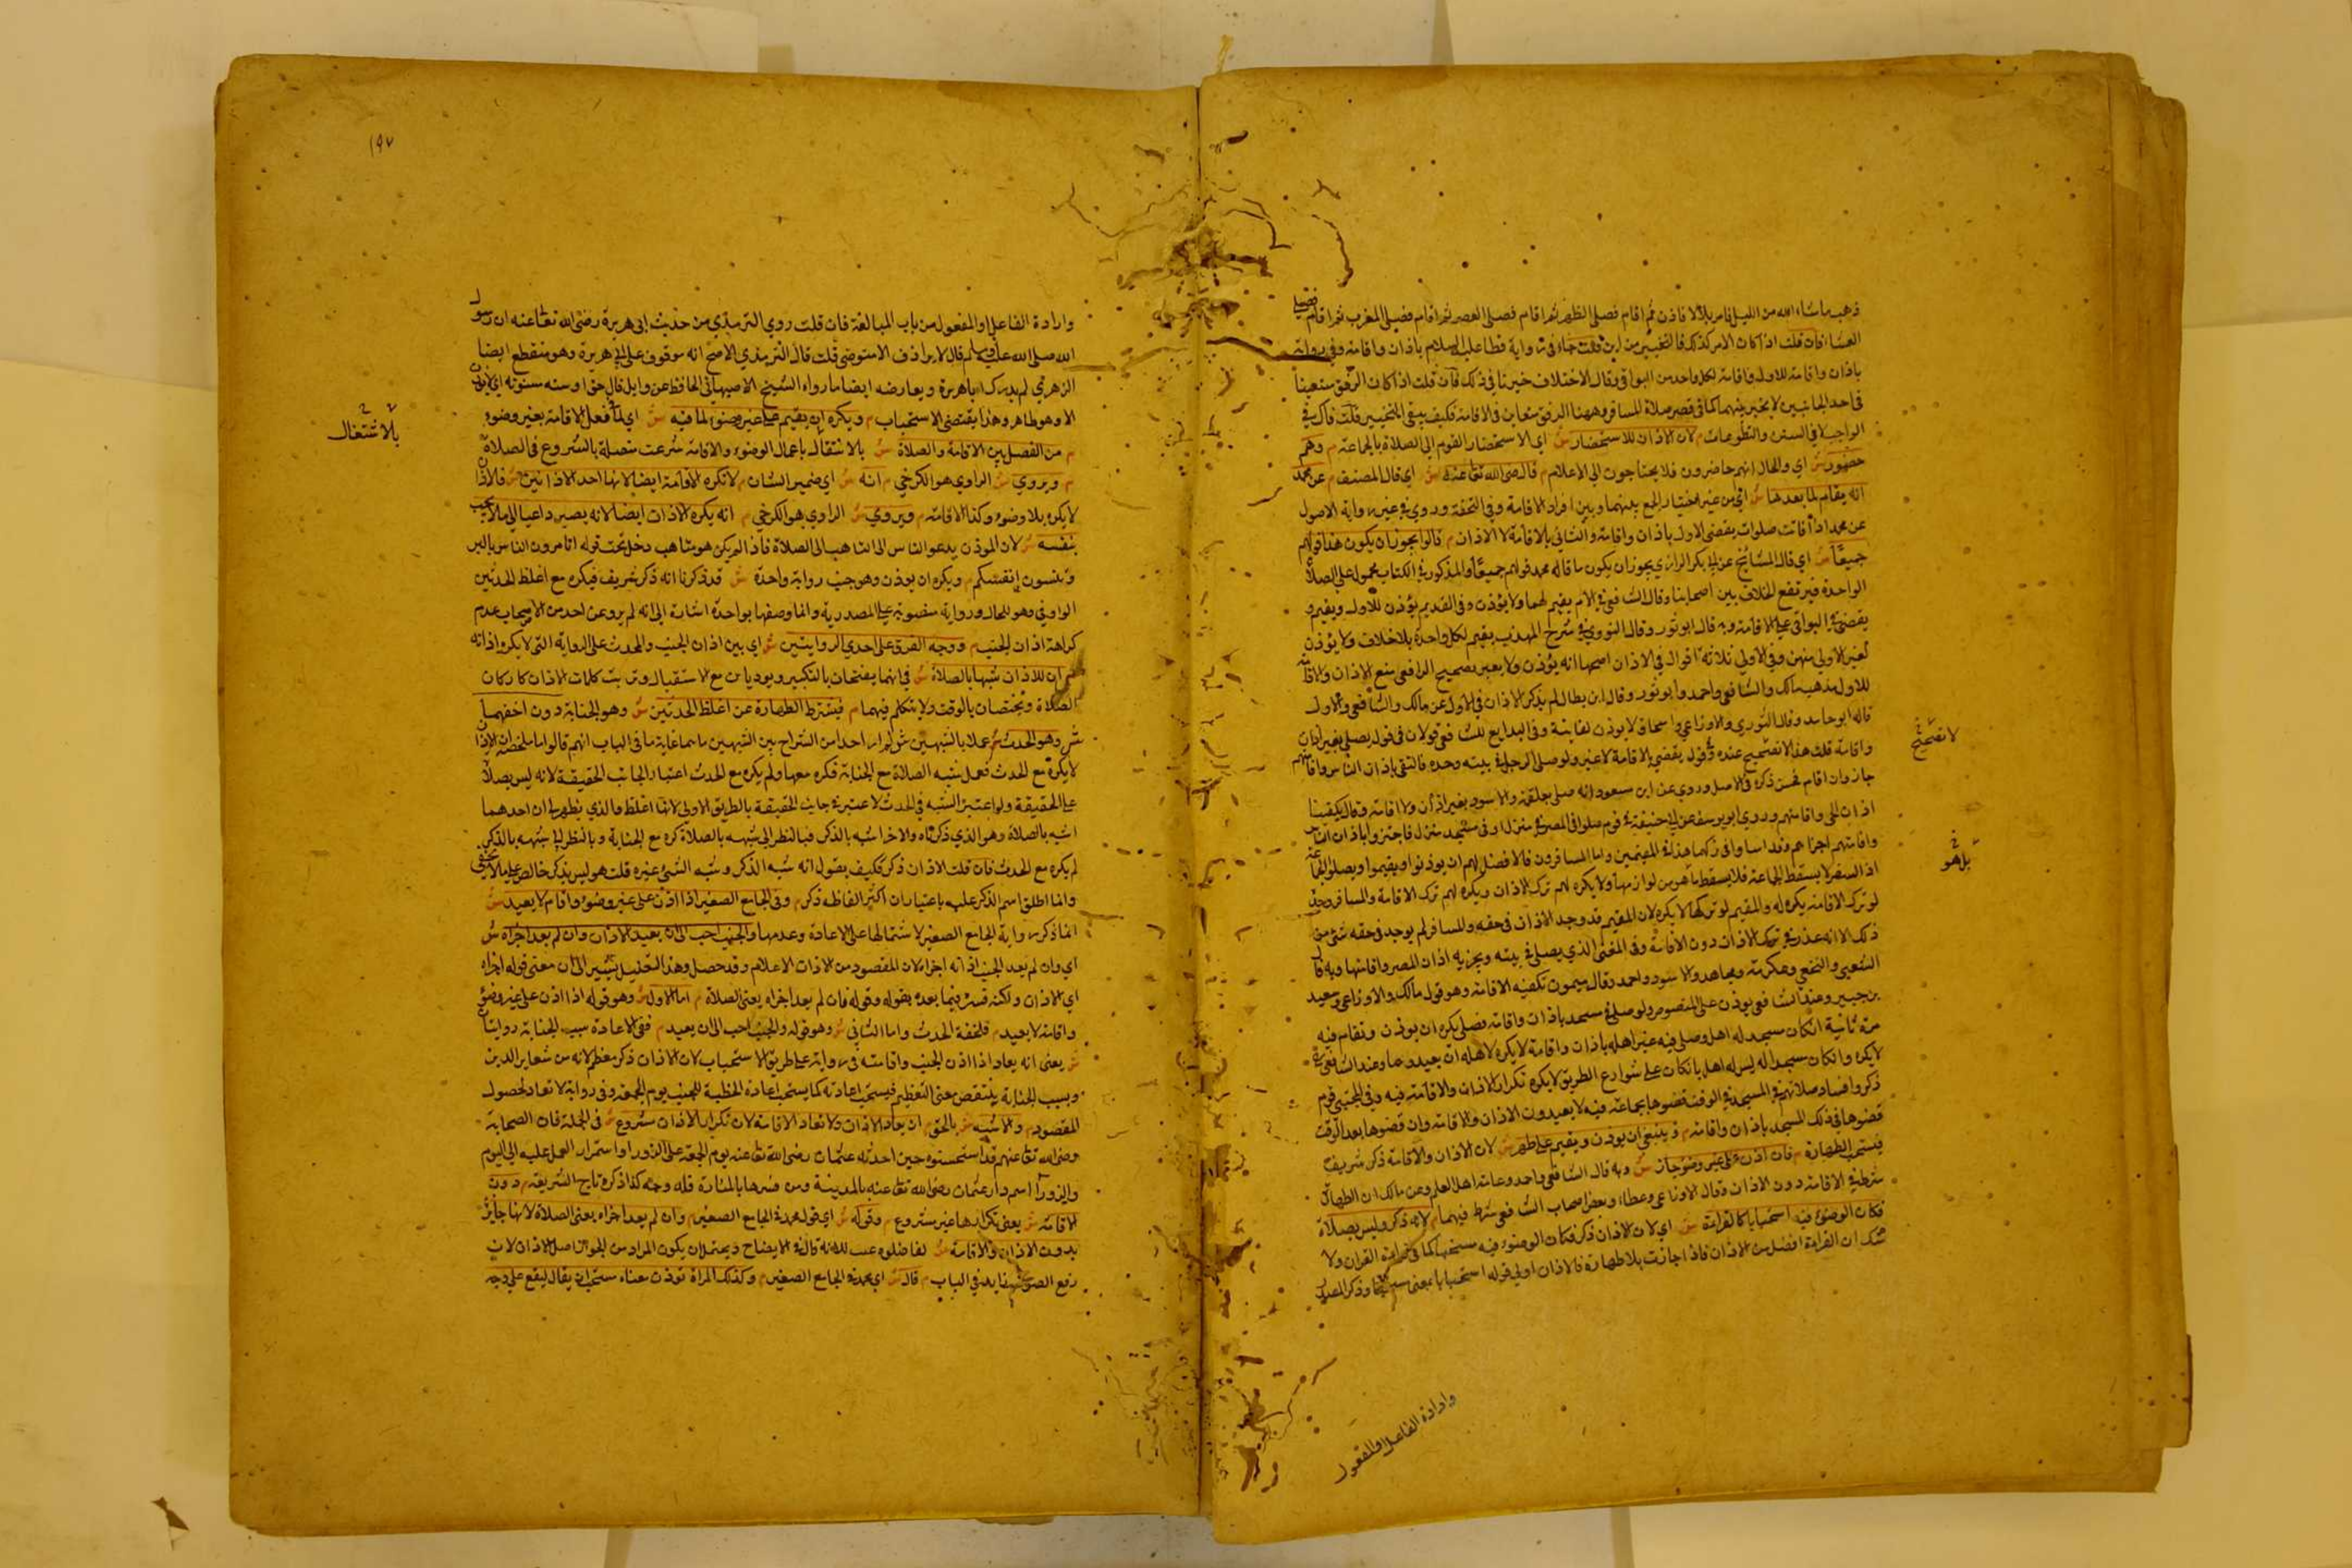 فذهب ماشاء الله من الليل فامر بلالا فاذن ثم اقام فصلى الظهر ثم اقام فصلى العصر ثم اقام فصلى المغرب ثم اقام فصلى
العشا فان قلت اذا كان الامر كذلك فالتخيير من اين قلت جاء في رواية قضاها عليه السلام باذان واقامة وفي رواية
باذان واقامة للاول واقامة لكل واحدة من البواقي وقال الاختلاف خيرنا في ذلك فان قلت اذا كان الرفق متعينا
في احد الجانبين لا تخيير بينهما كما في قصر صلاة المسافر وههنا الرفق متعين في الاقامة فكيف يبقى التخيير قلت ذاك في
الواجب لا في السنن والتطوعات م لان الاذان للاستحضار ش اي لاستحضار القوم الى الصلاة بالجماعة م وهم
حضور ش اي والحال انهم حاضرون فلا يحتاجون الى الاعلام م قال رضي الله تعالى عنه ش اي قال المصنف م عن محمد
انه يقام لما بعدها ش اي من غير اختيار الجمع بينهما وبين افراد الاقامة وفي التحفة وروي في غير رواية الاصول
عن محمد اذا فاتت صلوات يقضي الاول باذان واقامة والثاني بالاقامة لا الاذان م قالوا يجوز ان يكون هذا قولهم
جميعا ش اي قال المشايخ عن ابي بكر الرازي يجوز ان يكون ما قاله محمد قولهم جميعا والمذكور في الكتاب محمول على الصلاة
الواحدة فيرتفع الخلاف بين اصحابنا وقال الشافعي في الام يقيم لهما ولا يؤذن وفي القديم يؤذن للاول ويقيم و
يقتصر في البواقي على الاقامة وبه قال ابو ثور وقال النووي في شرح المهذب يقيم لكل واحدة بلا خلاف ولا يؤذن
لغير الاولى منهن وفي الاولى ثلاثة اقوال في الاذان اصحها انه يؤذن ولا يعبر بتصحيح الرافعي منع الاذان والاقامة
للاول مذهب مالك والشافعي واحمد وابو ثور وقال ابن بطال لم يذكر الاذان في الاول عن مالك والشافعي والاول
قاله ابو حامد وقال الثوري والاوزاعي واسحاق لا يوذن لفايتة وفي البدايع للشافعي قولان في قول يصلي بغير اذان
واقامة قلت هذا لا تصحيح عنده وفي قول يقضي بالاقامة لا غير ولو صلى الرجل في بيته وحده فاكتفى باذان الناس واقامتهم
جاز وان اقام فحسن ذكره في الاصل وروي عن ابن مسعود انه صلى بعلقمة والاسود بغير اذان ولا اقامة وقال يكفينا
اذان الحي واقامتهم وروى ابو يوسف عن ابي حنيفة في قوم صلوا في المصر في منزل او في مسجد منزل فاجتزوا باذان الناس
واقامتهم اجزاهم وقد اساوا في تركهما هذا في المقيمين واما المسافرون فالافضل لهم ان يوذنوا ويقيموا ويصلوا بجماعة
اذ السفر لا يسقط الجماعة فلا يسقط ما هو من لوازمها ولا يكره لهم ترك الاذان ويكره لهم ترك الاقامة والمسافر وحده
لو ترك الاقامة يكره له والمقيم لو تركها لا يكره لان المقيم قد وجد الاذان في حقه والمسافر لم يوجد في حقه شئ من
ذلك الا انه عذر في ترك الاذان دون الاقامة وفي المغني الذي يصلي في بيته ويجزيه اذان المصر واقامتها وبه قال
الشعبي والنخعي وعكرمة ومجاهد والاسود واحمد وقال ميمون تكفيه الاقامة وهو قول مالك والاوزاعي وسعيد
بن جبير وعند الشافعي يوذن على المنصوص ولو صلى في مسجد باذان واقامة فصلى يكره ان يوذن وتقام فيه
مرة ثانية ان كان مسجد له اهل وصلى فيه غير اهله باذان واقامة لا يكره لاهله ان يعيدوهما وعند الشافعي
لا يكره وان كان مسجدا له ليس له اهل بان كان على شوارع الطريق لا يكره تكرار الاذان والاقامة فيه وفي المجتبى قوم
ذكروا فساد صلاتهم في المسجد في الوقت قضوها بجماعة فيه لا يعيدون الاذان والاقامة وان قضوها بعد الوقت
قضوها في ذلك المسجد باذان واقامة م وينبغي ان يوذن ويقيم على طهر ش لان الاذان والاقامة ذكر شريف
فيستحب الطهارة م فان اذن على غير وضوء جاز ش وبه قال الشافعي واحمد وعامة اهل العلم وعن مالك ان الطهارة
شرط في الاقامة دون الاذان وقال الاوزاعي وعطاء وبعض اصحاب الشافعي شرط فيهما م لانه ذكر وليس بصلاة
فكان الوضوء فيه استحبابا كالقراءة ش اي لان الاذان ذكر فكان الوضوء فيه مستحبا كما في قراءة القران ولا
شك ان القراءة افضل من الاذان فاذا جازت بلا طهارة فالاذان اولى قوله استحبابا بمعنى مستحبا وذكر المصدر
لا تصحيح
بل هو
وارادة الفاعل والمفعول
١٩٧
وارادة الفاعل او المفعول من باب المبالغة فان قلت روى الترمذي من حديث ابي هريرة رضي الله تعالى عنه ان رسول
الله صلى الله عليه وسلم قال لا يؤذن الا متوضئ قلت قال الترمذي الاصح انه موقوف على ابي هريرة وهو منقطع ايضا
الزهري لم يدرك ابا هريرة ويعارضه ايضا ما رواه الشيخ الاصبهاني الحافظ عن وايل قال حق وسنة مسنونة ان لا يؤذن
الا وهو طاهر وهذا يقتضي الاستحباب م ويكره ان يقيم على غير وضوء لما فيه ش اي لما في فعل الاقامة بغير وضوء
م من الفصل بين الاقامة والصلاة ش بالاشتغال باعمال الوضوء والاقامة شرعت متصلة بالشروع في الصلاة
م ويروى ش الراوي هو الكرخي م انه ش اي ضمير الشان م لا تكره الاقامة ايضا لانها احد الاذانين ش فالاذان
لا يكره بلا وضوء وكذا الاقامة م ويروى ش الراوي هو الكرخي م انه يكره الاذان ايضا لانه يصير داعيا الى ما لا يجيب
بنفسه ش لان الموذن يدعو الناس الى التاهب الى الصلاة فاذا لم يكن هو متاهب دخل تحت قوله اتامرون الناس بالبر
وتنسون انفسكم م ويكره ان يوذن وهو جنب رواية واحدة ش قد ذكرنا انه ذكر شريف فيكره مع اغلظ الحدثين
الواو في وهو للحال ورواية منصوبة على المصدرية وانما وصفها بواحدة اشارة الى انه لم يرو عن احد من الاصحاب عدم
كراهة اذان الجنب م ووجه الفرق على احدى الروايتين ش اي بين اذان الجنب والمحدث على الرواية التي لا يكره اذانه
م ان للاذان شبها بالصلاة ش في انهما يفتتحان بالتكبير ويوديان مع الاستقبال وترتب كلمات الاذان كاركان
الصلاة ويختصان بالوقت ولا يتكلم فيهما م فيشترط الطهارة عن اغلظ الحدثين ش وهو الجنابة دون اخفهما
ش وهو الحدث م عملا بالشبهين ش لم ار احدا من الشراح بين الشبهين ما هما غاية ما في الباب انهم قالوا ما ملخصه ان الاذان
لا يكره مع الحدث فعمل بشبه الصلاة مع الجنابة فكره معها ولم يكره مع الحدث اعتبار الجانب الحقيقة لانه ليس بصلاة
على الحقيقة ولو اعتبر الشبه في الحدث لاعتبر في جانب الحقيقة بالطريق الاولى لانها اغلظ والذي يظهر لي ان احدهما
اشبه بالصلاة وهو الذي ذكرناه والاخر اشبه بالذكر فبالنظر الى شبهه بالصلاة كره مع الجنابة وبالنظر الى شبهه بالذكر
لم يكره مع الحدث فان قلت الاذان ذكر فكيف يقول انه شبه الذكر وشبه الشئ غيره قلت هو ليس بذكر خالص على ما لا يخفى
وانما اطلق اسم الذكر عليه باعتبار ان اكثر الفاظه ذكر م وفي الجامع الصغير اذا اذن على غير وضوء واقام لا يعيد ش
انما ذكر رواية الجامع الصغير لاشتمالها على الاعادة وعدمها والجنب احب الى ان يعيد الاذان وان لم يعد اجزاه ش
اي وان لم يعد الجنب اذانه اجزاه لان المقصود من الاذان الاعلام وقد حصل وهذا التعليل يشير الى ان معنى قوله اجزاه
اي الاذان ولكنه فسره فيما بعده بقوله وقوله فان لم يعد اجزاه يعني الصلاة م اما الاول ش وهو قوله اذا اذن على غير وضوء
واقامة لا يعيد م فلخفة الحدث واما الثاني ش وهو قوله والجنب احب الى ان يعيد م ففي الاعادة بسبب الجنابة روايتان
ش يعني انه يعاد اذا اذن الجنب واقامته في رواية على طريق الاستحباب لان الاذان ذكر معظم لانه من شعاير الدين
وبسبب الجنابة ينتقص معنى التعظيم فيستحب اعادته كما يستحب اعادة الخطبة للجنب يوم الجمعة وفي رواية لا تعاد لحصول
المقصود م والاشبه ش بالحق م ان يعاد الاذان ولا تعاد الاقامة لان تكرار الاذان مشروع ش في الجملة فان الصحابة
رضي الله تعالى عنهم قد استحسنوه حين احدثه عثمان رضي الله تعالى عنه يوم الجمعة على الزوراء واستمرار العمل عليه الى اليوم
والزوراء اسم دار عثمان رضي الله تعالى عنه بالمدينة ومن فسرها بالمنارة فله وجه كذا ذكره تاج الشريعة م دون
الاقامة ش يعني تكرارها غير مشروع م وقوله ش اي قول محمد في الجامع الصغير م وان لم يعد اجزاه يعني الصلاة لانها جايزة
بدون الاذان والاقامة ش قاله في الايضاح ويحتمل ان يكون المراد من الجواز اصل الاذان لان
رفع الصوت زايد في الباب م قال ش اي محمد في الجامع الصغير م وكذلك المراة توذن معناه يستحب ان يعاد ليقع على وجه
بالاشتغال